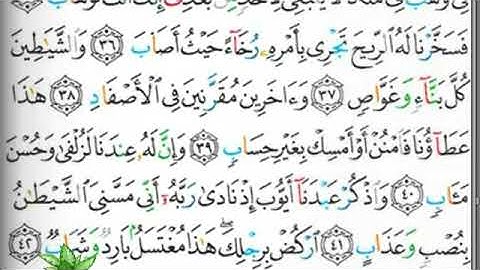 فَسَخَّرْنَا لَهُ ٱلرِّيحَ تَجْرِى بِأَمْرِهِۦ رُخَآءً حَيْثُ أَصَابَ ٣٦ وَٱلشَّيَٰطِينَ
كُلَّ بَنَّآءٍ وَغَوَّاصٍ ٣٧ وَءَاخَرِينَ مُقَرَّنِينَ فِى ٱلْأَصْفَادِ ٣٨ هَٰذَا
عَطَآؤُنَا فَٱمْنُنْ أَوْ أَمْسِكْ بِغَيْرِ حِسَابٍ ٣٩ وَإِنَّ لَهُۥ عِندَنَا لَزُلْفَىٰ وَحُسْنَ
مَـَٔابٍ ٤٠ وَٱذْكُرْ عَبْدَنَآ أَيُّوبَ إِذْ نَادَىٰ رَبَّهُۥٓ أَنِّى مَسَّنِىَ ٱلشَّيْطَٰنُ
بِنُصْبٍ وَعَذَابٍ ٤١ ٱرْكُضْ بِرِجْلِكَ ۖ هَٰذَا مُغْتَسَلٌۢ بَارِدٌ وَشَرَابٌ ٤٢